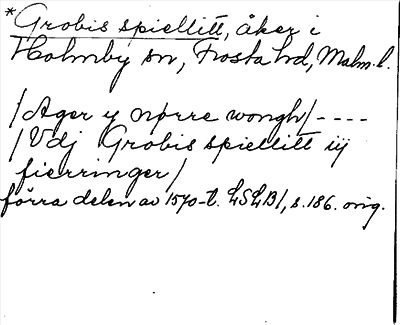 *Grobis spiellitt, åker i
Holmby sn, Frosta hd, Malm. l.
/Ager y nørre wongh/ - - - -
/Vdj Grobis spiellitt iij
fierringer/
förra delen av 1570-t. LSLB1, s. 186. orig.